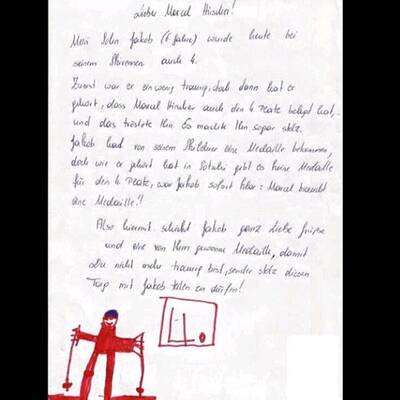 Lieber Marcel Hirscher!
Mein Sohn Jakob (6 Jahre) wurde heute bei
seinem Skirennen auch 4.
Zuerst war er ein wenig traurig, doch dann hat er
gehört, dass Marcel Hirscher auch den 4 Platz belegt hat,
und das tröstete Ihn. Es machte Ihn sogar stolz.
Jakob hat von seinem Skilehrer eine Medaille bekommen,
doch wie er gehört hat in Sotschi gibt es keine Medaille
für den 4. Platz, war Jakob sofort klar: Marcel braucht
eine Medaille!!
Also hiermit schickt Jakob ganz liebe Grüße
und eine von Ihm gewonne Medaille, damit
du nicht mehr traurig bist, sonder stolz diesen
Tag mit Jakob teilen zu dürfen!
4.